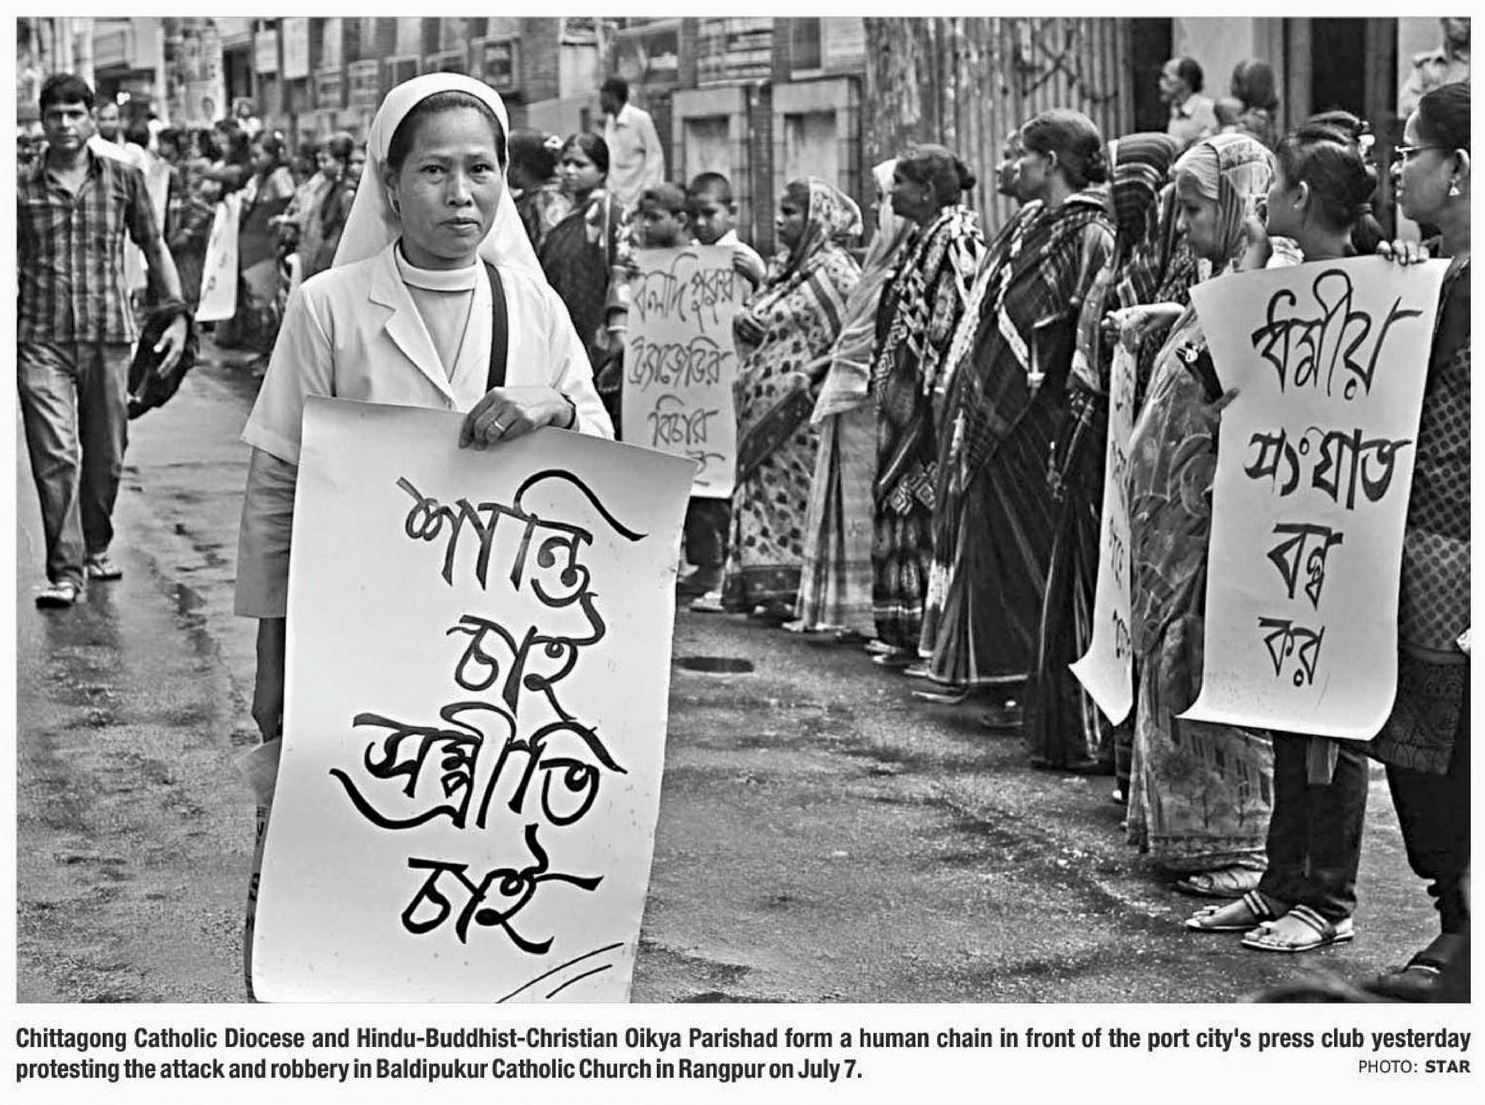 শান্তি
চাই
সম্প্রীতি
চাই
বলদি পুকুর
ট্র্যাজেডির
বিচার
ধর্মীয়
সংঘাত
বন্ধ
কর
Chittagong Catholic Diocese and Hindu-Buddhist-Christian Oikya Parishad form a human chain in front of the port city's press club yesterday
protesting the attack and robbery in Baldipukur Catholic Church in Rangpur on July 7.
PHOTO: STAR